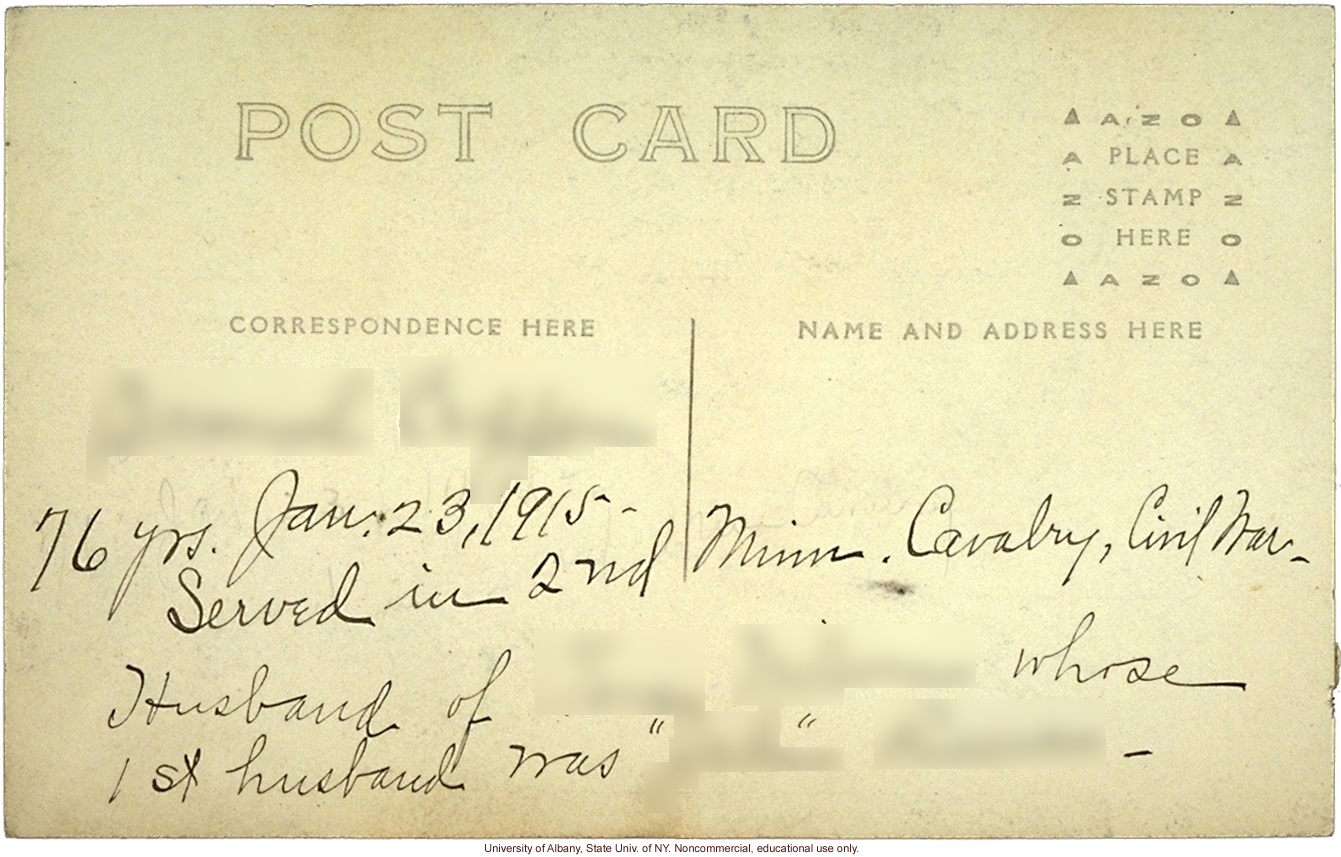 POST CARD
AZO
A PLACE A
Z STAMP Z
O HERE O
AZO
CORRESPONDENCE HERE
NAME AND ADDRESS HERE
76 yrs. Jan. 23, 1915-
Served in 2nd Minn. Cavalry, Civil War-
Husband of whose
1st husband was " " -
University of Albany, State Univ. of NY. Noncommercial, educational use only.